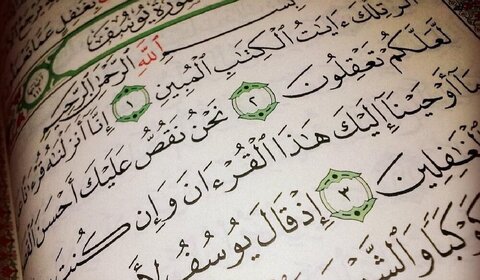 بغفل عما
سورة يوسف
بسم الله الرحمن الرحيم
الٓر تِلْكَ ءَايَٰتُ ٱلْكِتَٰبِ ٱلْمُبِينِ ١ إِنَّآ أَنزَلْنَٰهُ
لَّعَلَّكُمْ تَعْقِلُونَ ٢ نَحْنُ نَقُصُّ عَلَيْكَ أَحْسَنَ
مَآ أَوْحَيْنَآ إِلَيْكَ هَٰذَا ٱلْقُرْءَانَ وَإِن كُنتَ
ٱلْغَٰفِلِينَ ٣ إِذْ قَالَ يُوسُفُ
كَوْكَبًا وَٱلشَّمْسَ